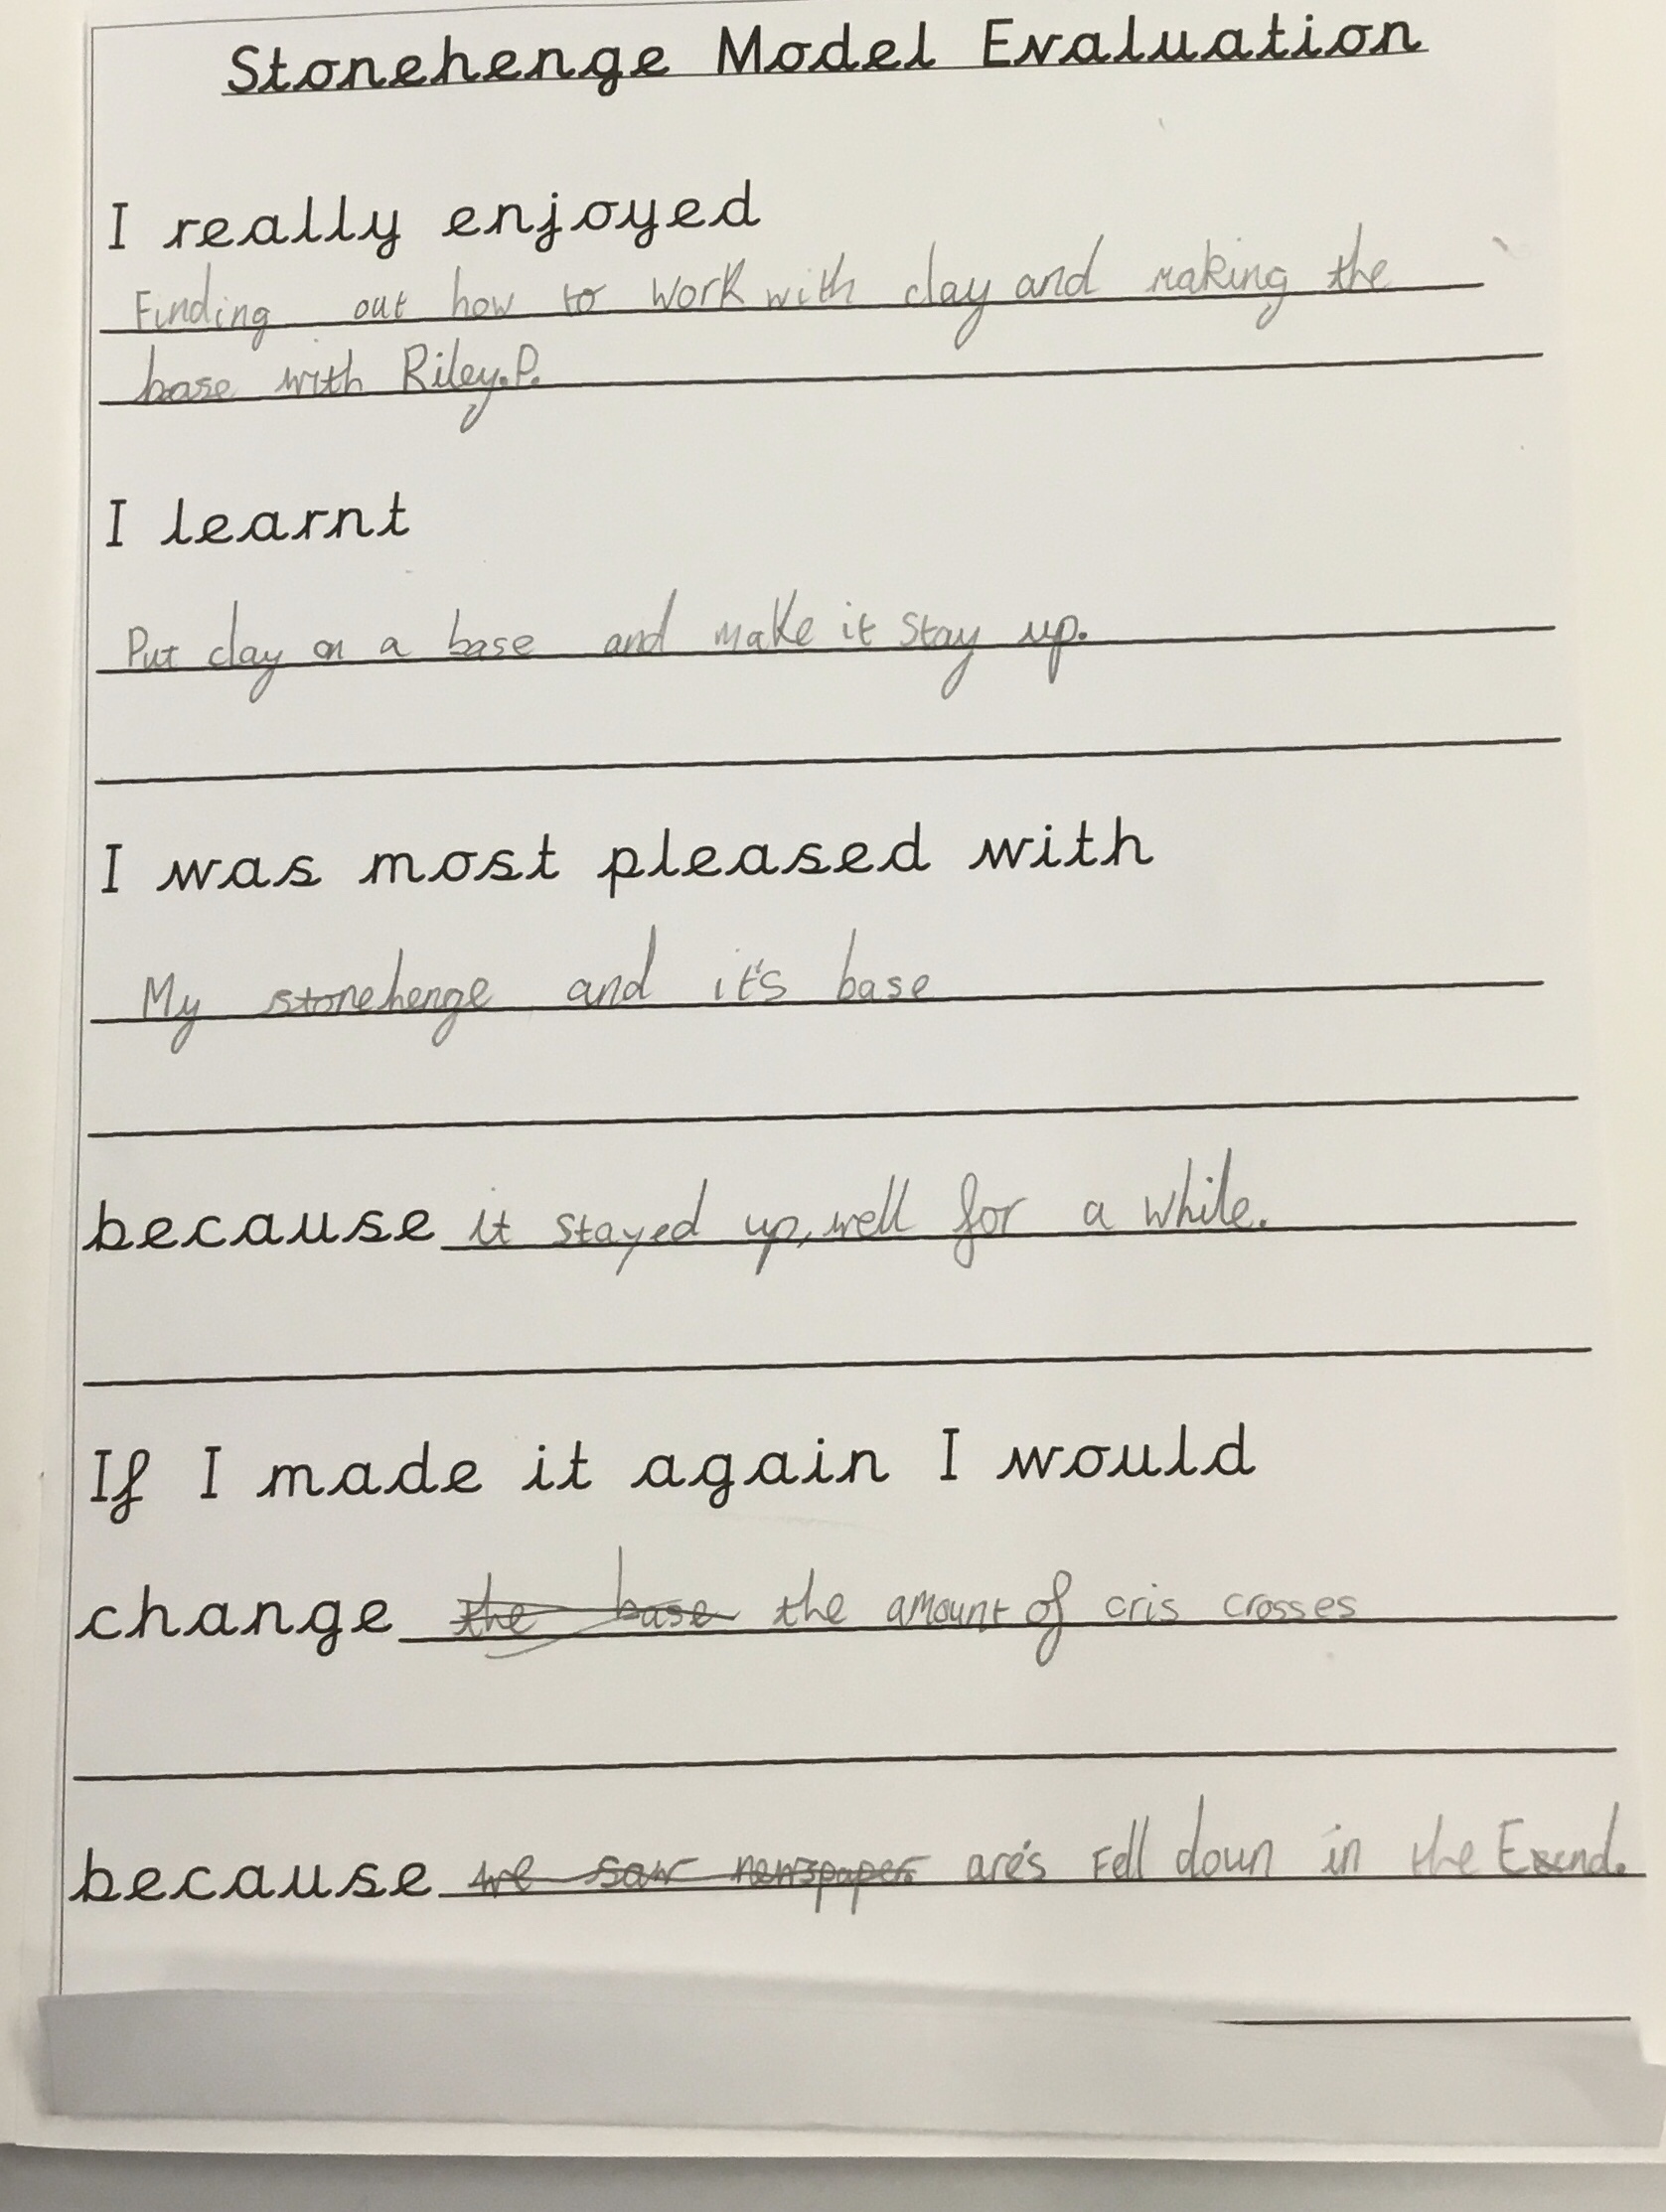 Stonehenge Model Evaluation
I really enjoyed
Finding out how to work with clay and making the
base with Riley.P.
I learnt
Put clay on a base and make it stay up.
I was most pleased with
My stonehenge and it's base
because it stayed up, well for a while.
If I made it again I would
change the base the amount of cris crosses
because we saw newspaper are's Fell down in the End.